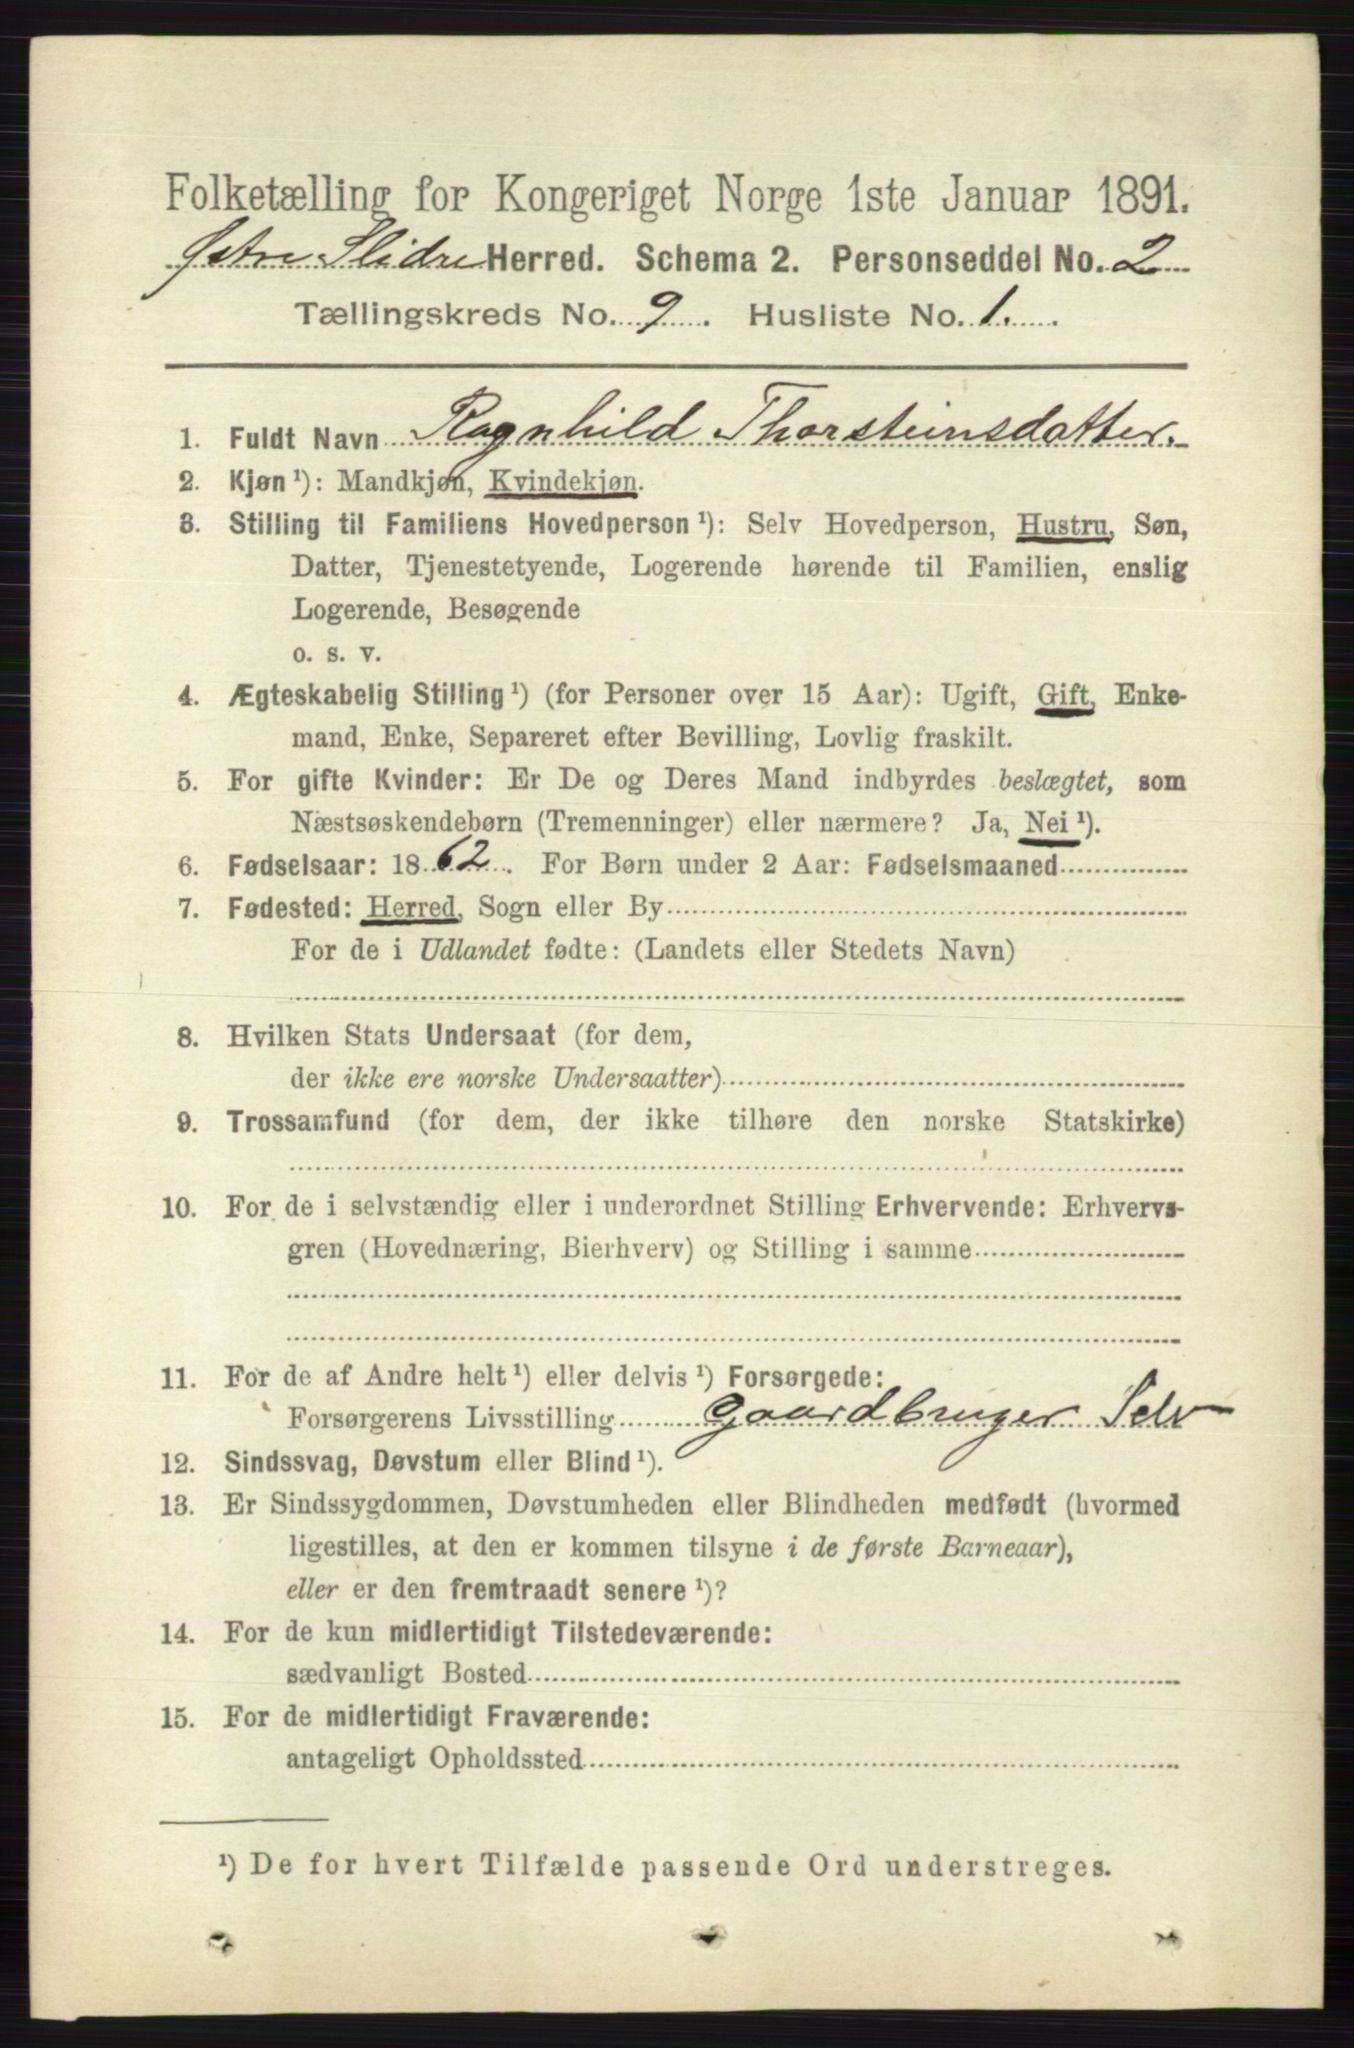 Folketælling for Kongeriget Norge 1ste Januar 1891.
Østre Slidre Herred. Schema 2. Personseddel No. 2
Tællingskreds No. 9. Husliste No. 1.
1. Fuldt Navn Ragnhild Thorsteinsdatter.
2. Kjøn ¹): Mandkjøn, Kvindekjøn.
3. Stilling til Familiens Hovedperson ¹): Selv Hovedperson, Hustru, Søn,
Datter, Tjenestetyende, Logerende hørende til Familien, enslig
Logerende, Besøgende
o. s. v.
4. Ægteskabelig Stilling ¹) (for Personer over 15 Aar): Ugift, Gift, Enke-
mand, Enke, Separeret efter Bevilling, Lovlig fraskilt.
5. For gifte Kvinder: Er De og Deres Mand indbyrdes beslægtet, som
Næstsøskendebørn (Tremenninger) eller nærmere? Ja, Nei ¹).
6. Fødselsaar: 1862. For Børn under 2 Aar: Fødselsmaaned
7. Fødested: Herred, Sogn eller By
For de i Udlandet fødte: (Landets eller Stedets Navn)
8. Hvilken Stats Undersaat (for dem,
der ikke ere norske Undersaatter)
9. Trossamfund (for dem, der ikke tilhøre den norske Statskirke)
10. For de i selvstændig eller i underordnet Stilling Erhvervende: Erhvervs-
gren (Hovednæring, Bierhverv) og Stilling i samme
11. For de af Andre helt ¹) eller delvis ¹) Forsørgede:
Forsørgerens Livsstilling Gaardbruger Selv
12. Sindssvag, Døvstum eller Blind ¹).
13. Er Sindssygdommen, Døvstumheden eller Blindheden medfødt (hvormed
ligestilles, at den er kommen tilsyne i de første Barneaar),
eller er den fremtraadt senere ¹)?
14. For de kun midlertidigt Tilstedeværende:
sædvanligt Bosted
15. For de midlertidigt Fraværende:
antageligt Opholdssted
¹) De for hvert Tilfælde passende Ord understreges.